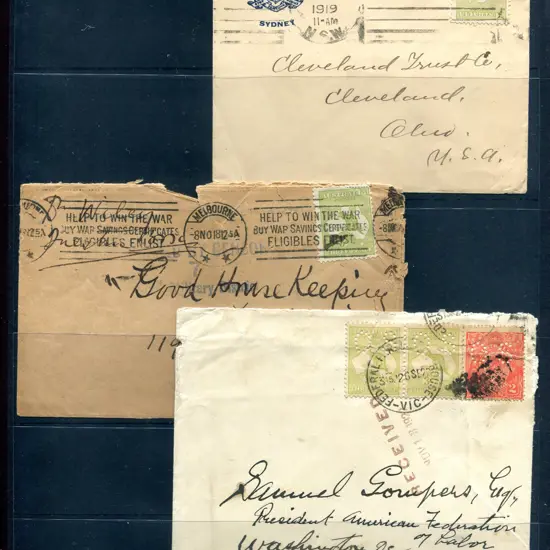 SYDNEY
1919
11-AM
N.S.W
Cleveland Trust Co,
Cleveland,
Ohio.
U.S.A.
HELP TO WIN THE WAR
BUY WAR SAVINGS CERTIFICATES
ELIGIBLES ENLIST
MELBOURNE
-8NO18 12.5A
HELP TO WIN THE WAR
BUY WAR SAVINGS CERTIFICATES
ELIGIBLES ENLIST
Good House Keeping
119
VIC
RECEIVED
Samuel Gompers, Esq,
President American Federation
of Labor
Washington